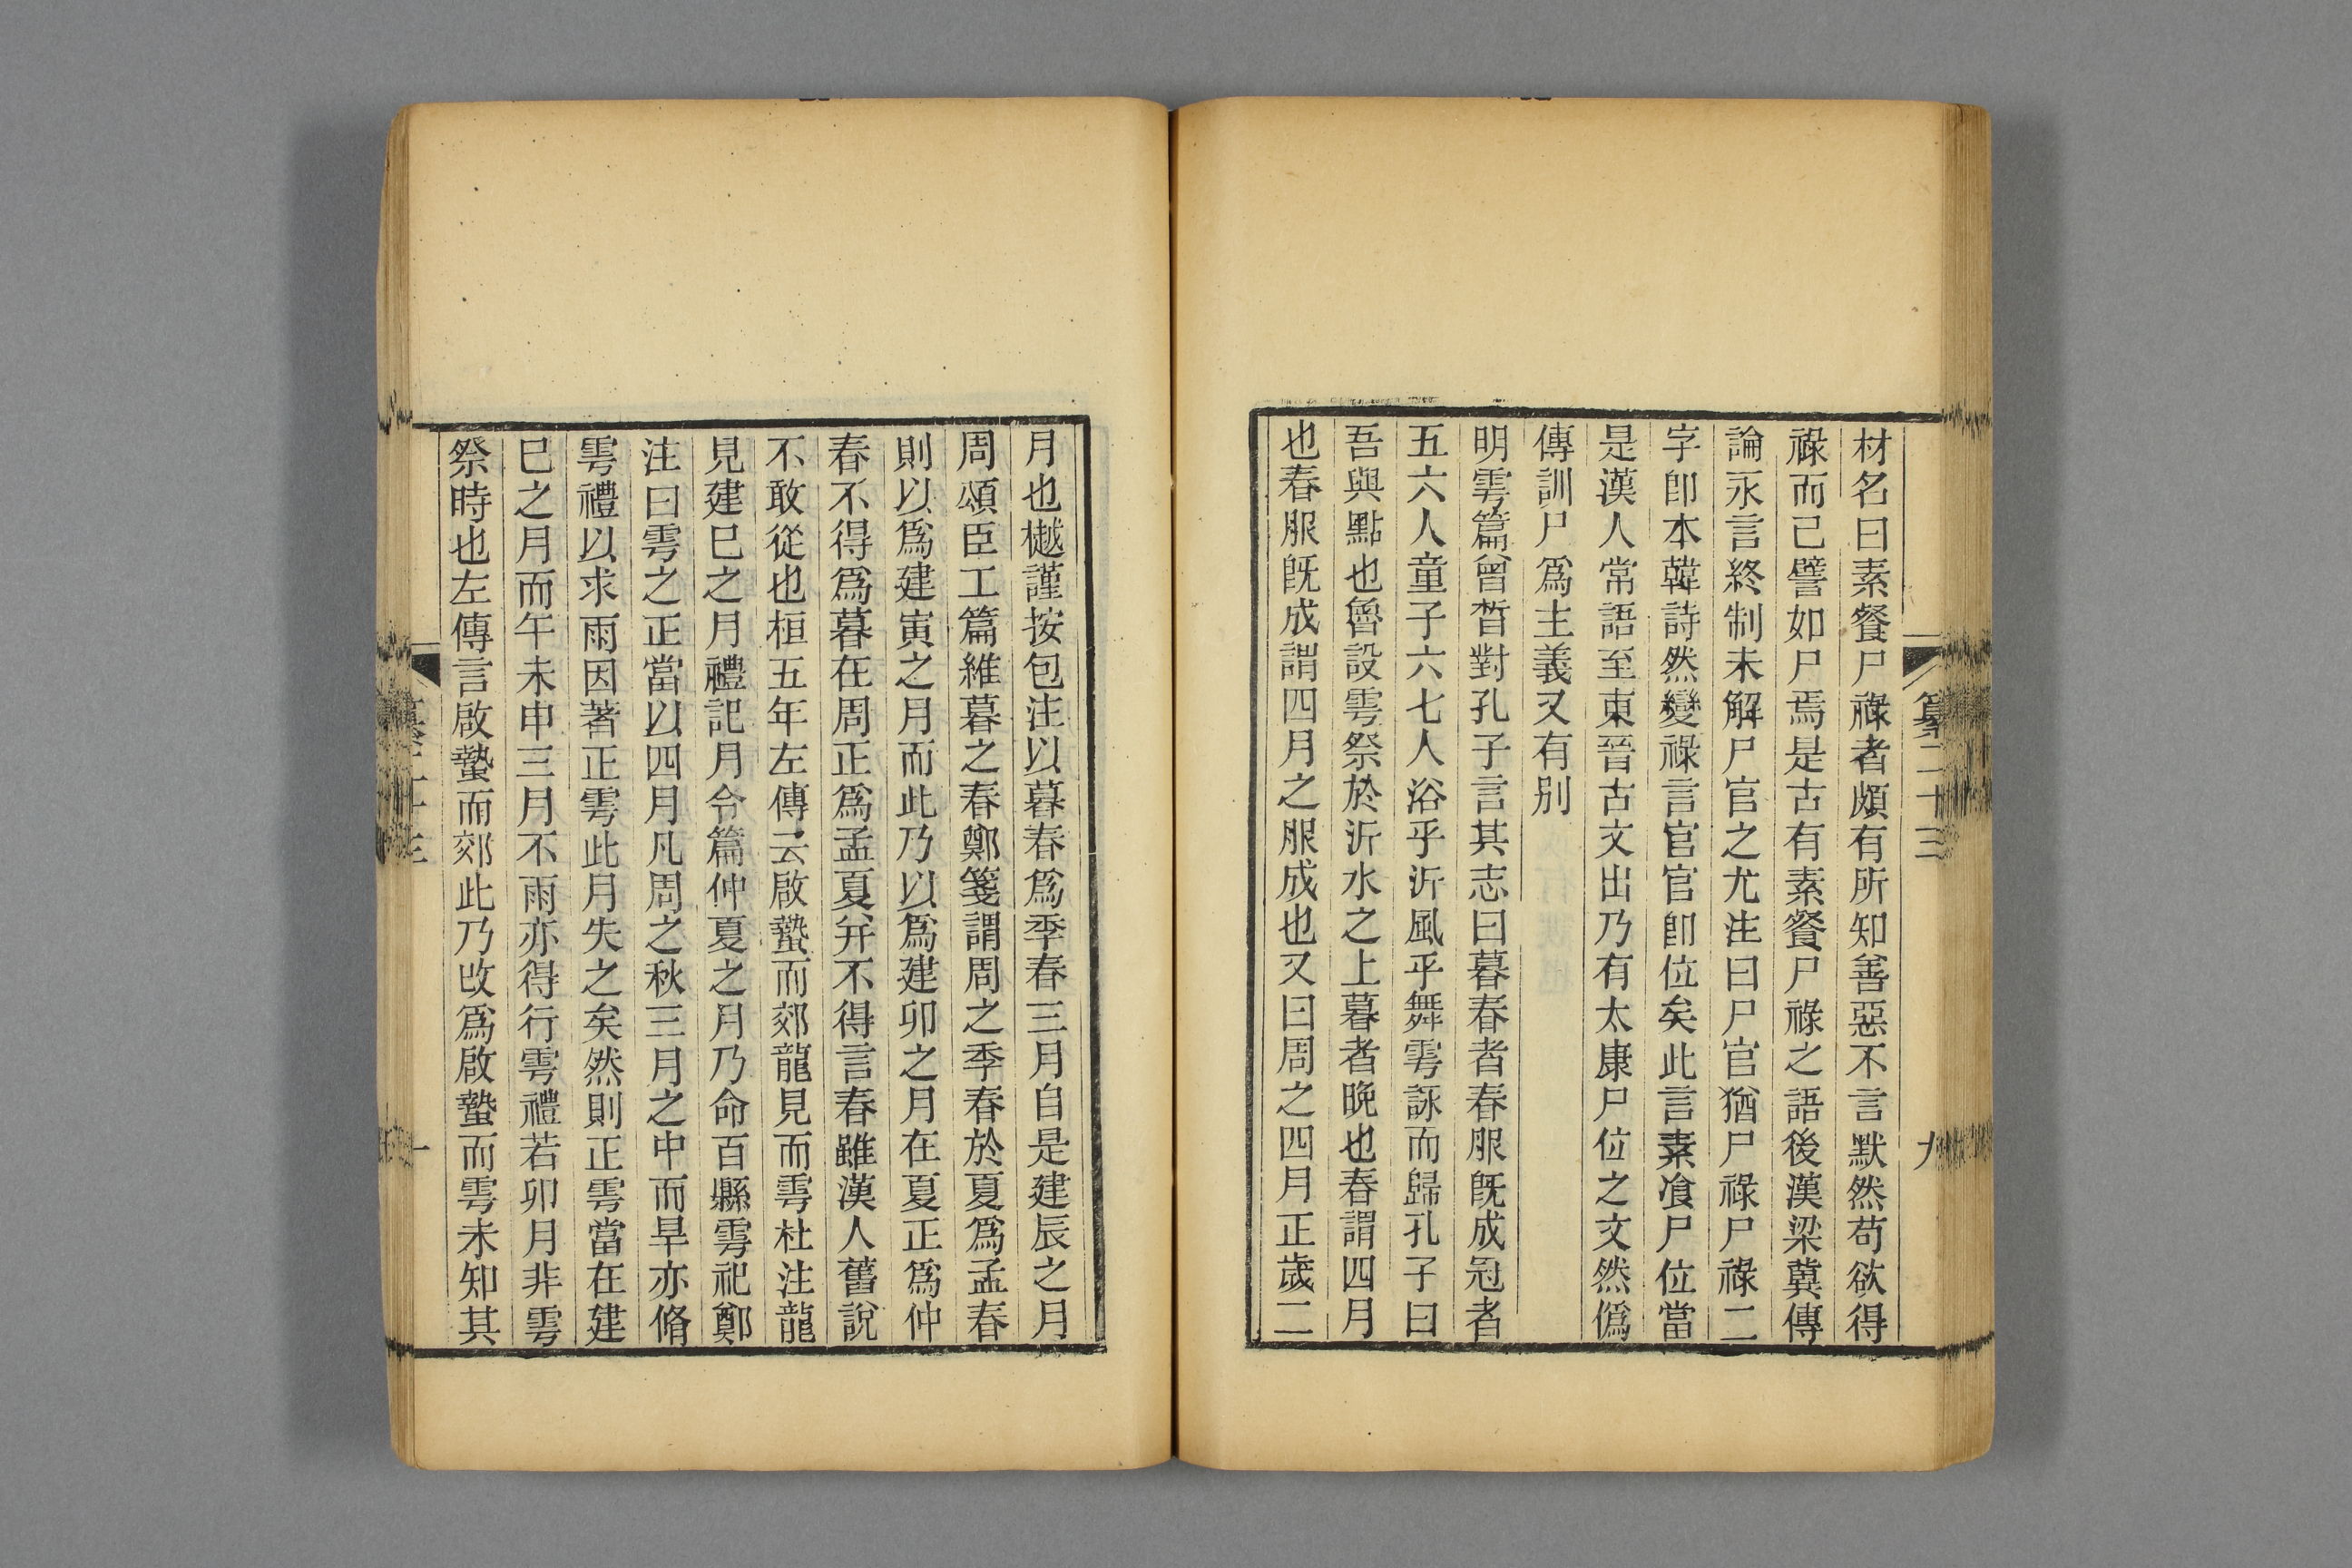 材名曰素餐尸祿者頗有所知善惡不言默然苟欲得
祿而已譬如尸焉是古有素餐尸祿之語後漢梁冀傳
論永言終制未解尸官之尤注曰尸官猶尸祿尸祿二
字卽本韓詩然變祿言官官卽位矣此言素飡尸位當
是漢人常語至東晉古文出乃有太康尸位之文然僞
傳訓尸爲主義又有別
明雩篇曾晳對孔子言其志曰暮春者春服旣成冠者
五六人童子六七人浴乎沂風乎舞雩詠而歸孔子曰
吾與點也魯設雩祭於沂水之上暮者晚也春謂四月
也春服旣成謂四月之服成也又曰周之四月正歲二
纂二十三
九
月也樾謹按包注以暮春爲季春三月自是建辰之月
周頌臣工篇維暮之春鄭箋謂周之季春於夏爲孟春
則以爲建寅之月而此乃以爲建卯之月在夏正爲仲
春不得爲暮在周正爲孟夏幷不得言春雖漢人舊說
不敢從也桓五年左傳云啟蟄而郊龍見而雩杜注龍
見建巳之月禮記月令篇仲夏之月乃命百縣雩祀鄭
注曰雩之正當以四月凡周之秋三月之中而旱亦脩
雩禮以求雨因著正雩此月失之矣然則正雩當在建
巳之月而午未申三月不雨亦得行雩禮若卯月非雩
祭時也左傳言啟蟄而郊此乃改爲啟蟄而雩未知其